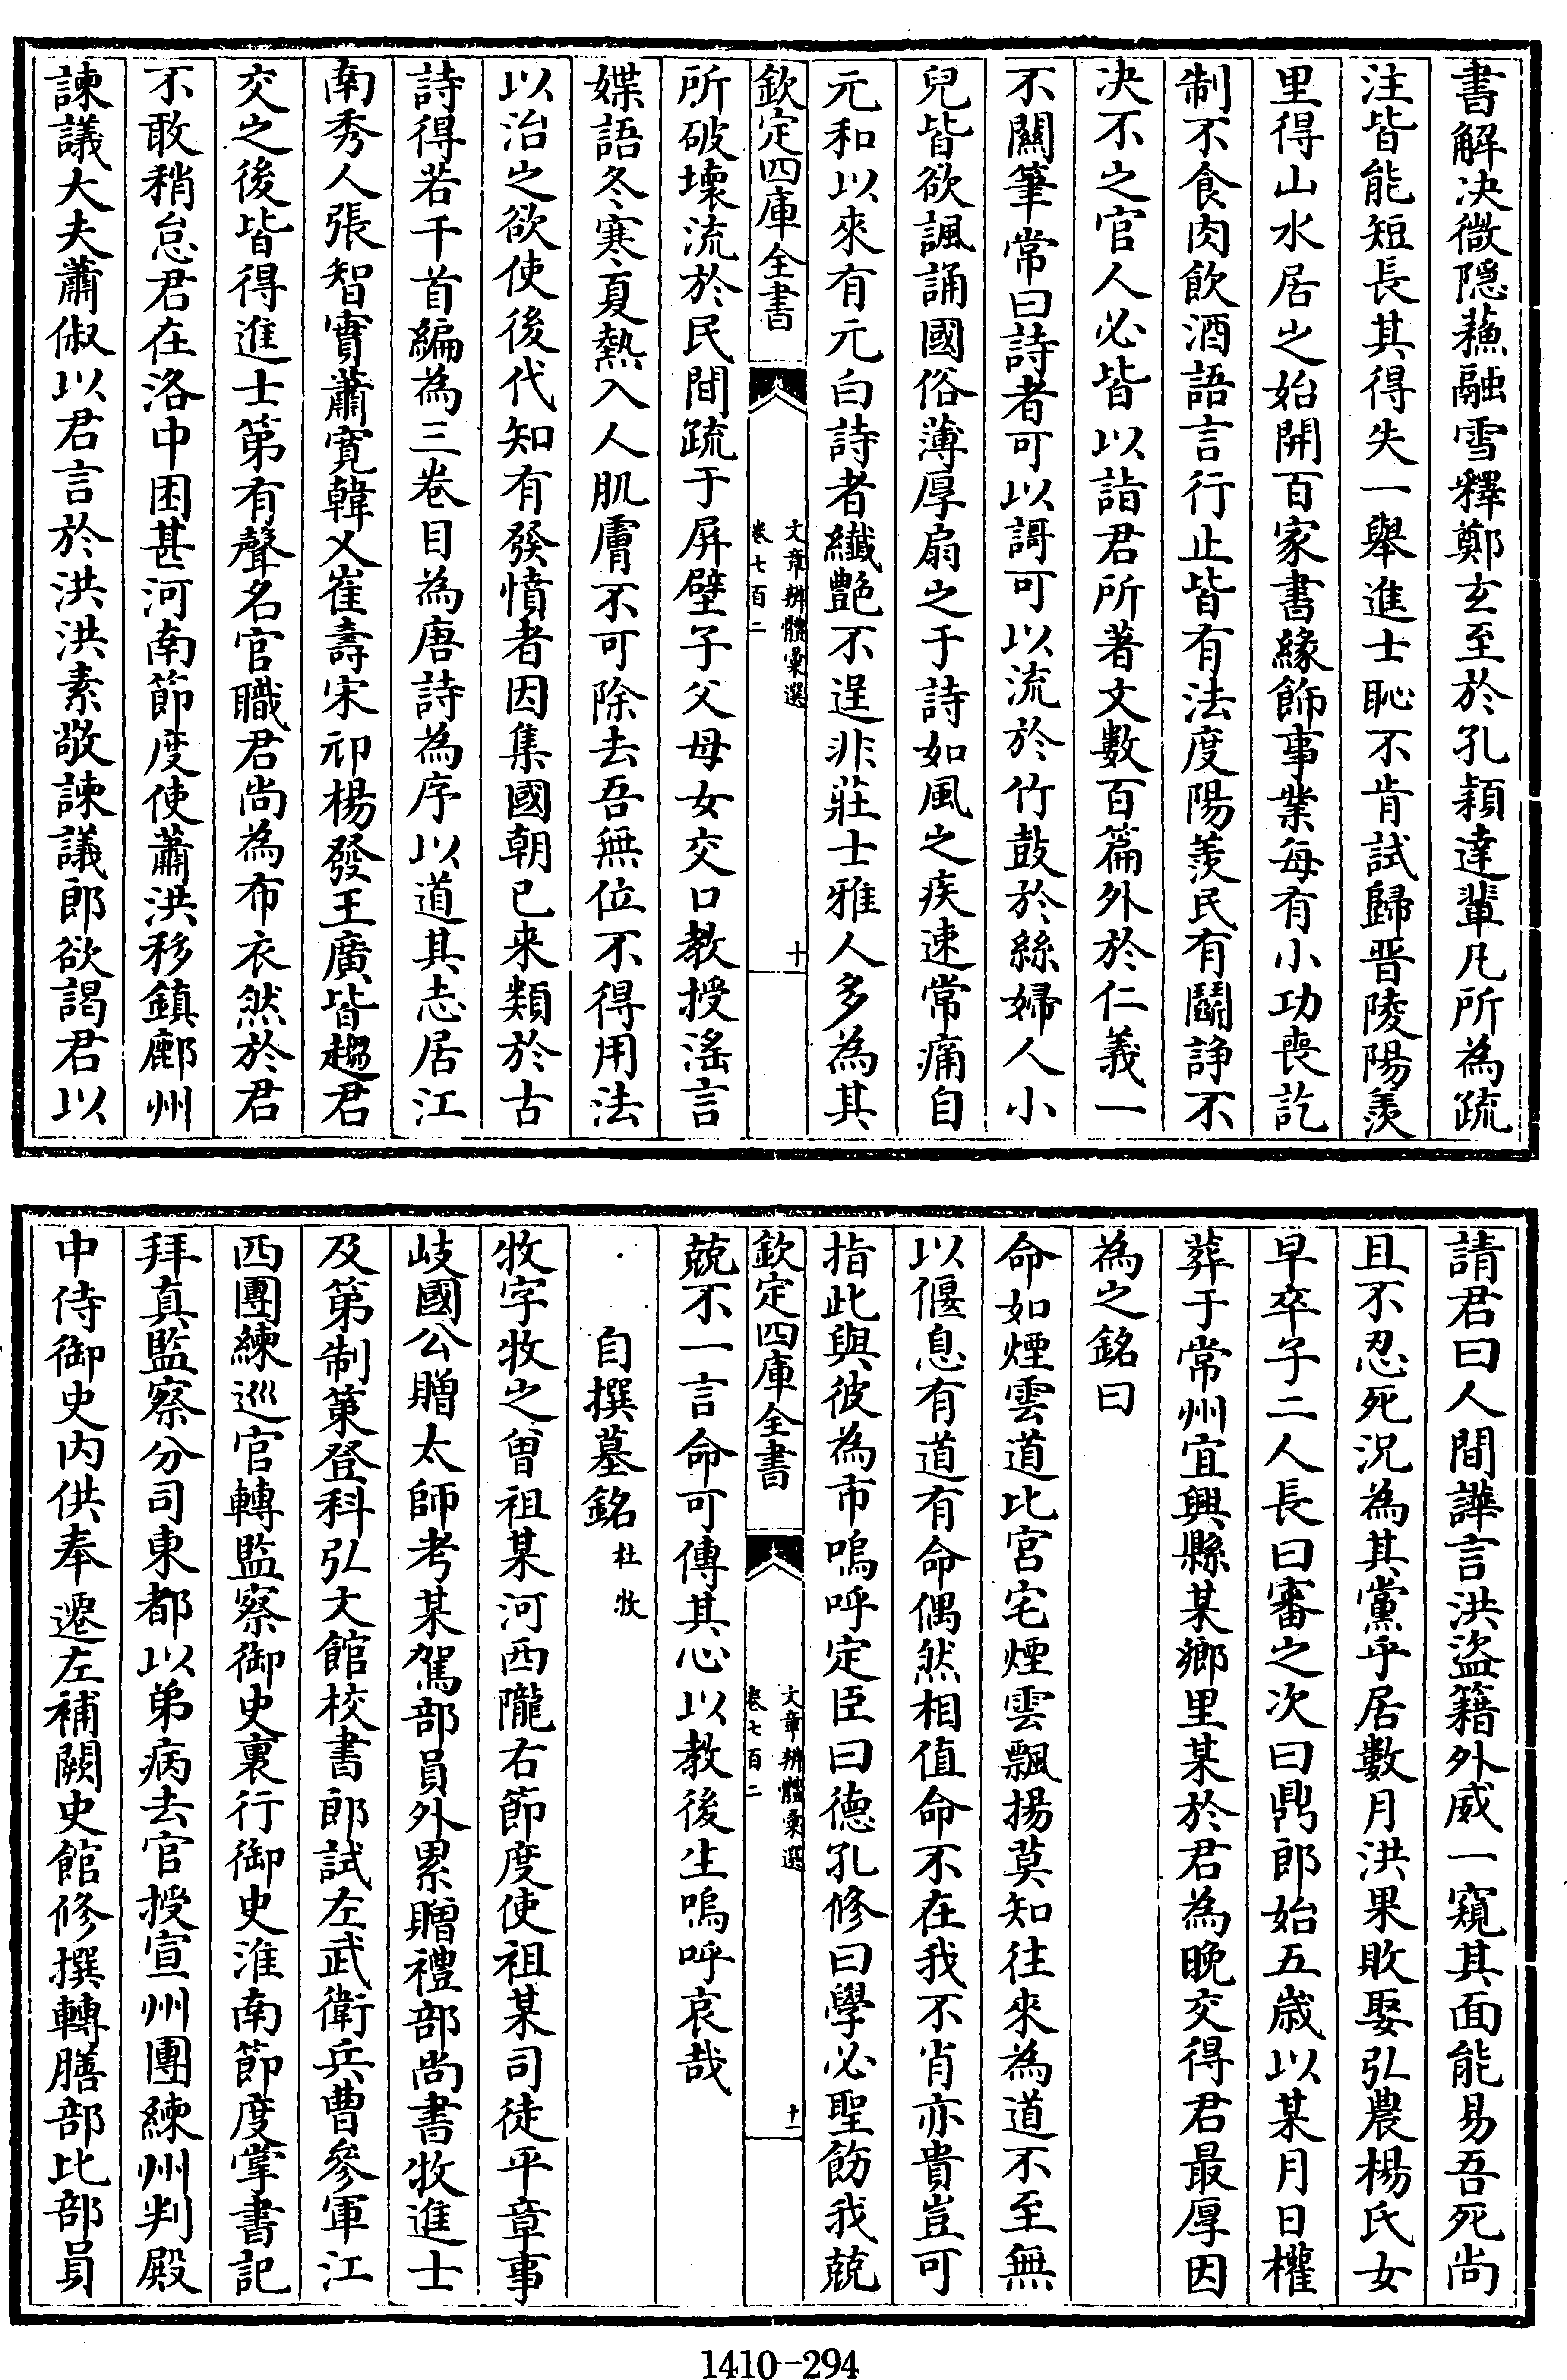 書解决微隱蘓融雪釋鄭玄至於孔穎達輩凡所為疏
注皆能短長其得失一舉進士恥不肯試歸晋陵陽羨
里得山水居之始開百家書緣飾事業每有小功喪訖
制不食肉飲酒語言行止皆有法度陽羨民有鬭諍不
决不之官人必皆以詣君所著文數百篇外於仁義一
不關筆常曰詩者可以謌可以流於竹鼓於絲婦人小
兒皆欲諷誦國俗薄厚扇之于詩如風之疾速常痛自
元和以來有元白詩者纖艶不逞非莊士雅人多為其
欽定四庫全書
文章辨體彚選
卷七百二
十
所破壞流於民間疏于屏壁子父母女交口教授滛言
媟語冬寒夏熱入人肌膚不可除去吾無位不得用法
以治之欲使後代知有發憤者因集國朝已来類於古
詩得若干首編為三卷目為唐詩為序以道其志居江
南秀人張智實蕭寘韓乂崔壽宋邧楊發王廣皆趨君
交之後皆得進士第有聲名官職君尚為布衣然於君
不敢稍怠君在洛中困甚河南節度使蕭洪移鎮鄜州
諫議大夫蕭俶以君言於洪洪素敬諫議郎欲謁君以
請君曰人間譁言洪盜籍外威一窺其面能易吾死尚
且不忍死况為其黨乎居數月洪果敗娶弘農楊氏女
早卒子二人長曰審之次曰鼎郎始五歲以某月日權
葬于常州宜興縣某鄉里某於君為晚交得君最厚因
為之銘曰
命如煙雲道比宫宅煙雲飄揚莫知往來為道不至無
以偃息有道有命偶然相值命不在我不肖亦貴豈可
指此與彼為市嗚呼定臣曰德孔修曰學必聖飭我兢
欽定四庫全書
文章辨體彚選
卷七百二
十一
兢不一言命可傳其心以教後生嗚呼哀哉
自撰墓銘 杜牧
牧字牧之曽祖某河西隴右節度使祖某司徒平章事
岐國公贈太師考某駕部員外累贈禮部尚書牧進士
及第制策登科弘文館校書郎試左武衛兵曹參軍江
西團練巡官轉監察御史裏行御史淮南節度掌書記
拜真監察分司東都以弟病去官授宣州團練州判殿
中侍御史内供奉遷左補闕史館修撰轉膳部比部員
1410--294